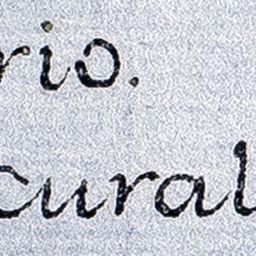 rio.
cural